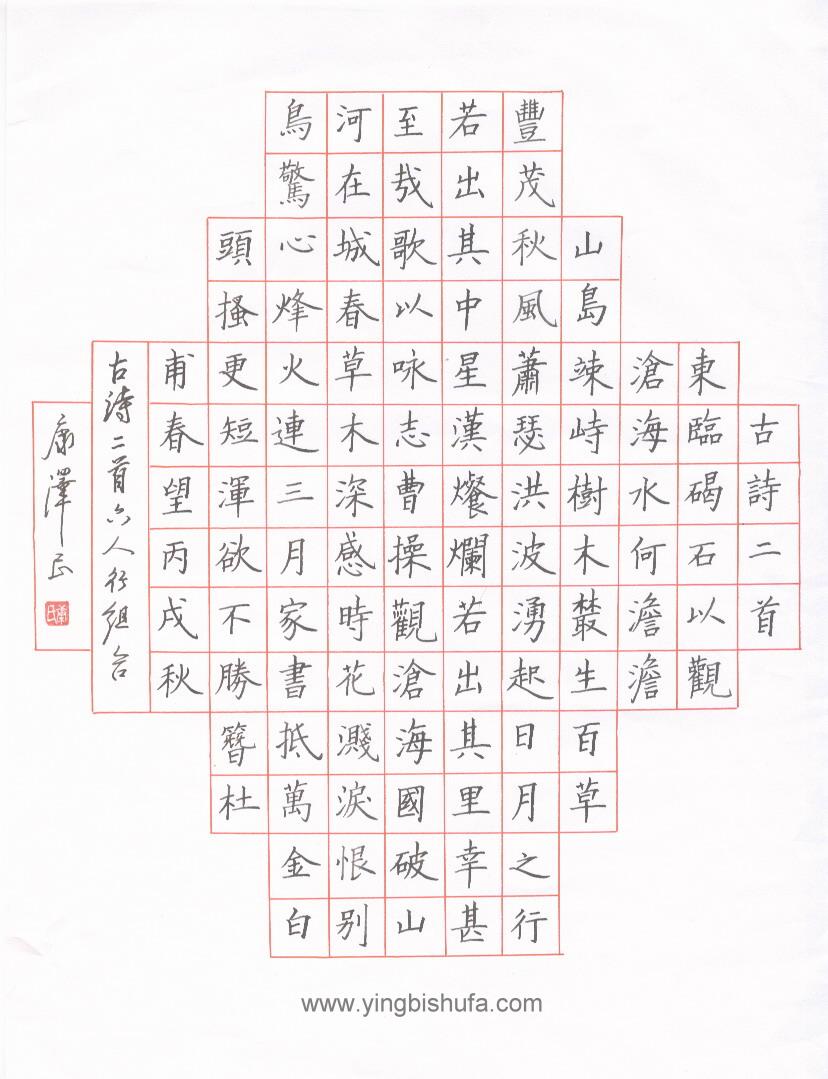 古詩二首
東臨碣石以觀
滄海水何澹澹
山島竦峙樹木叢生百草
豐茂秋風蕭瑟洪波湧起日月之行
若出其中星漢燦爛若出其里幸甚
至哉歌以咏志曹操觀滄海國破山
河在城春草木深感時花濺淚恨别
鳥驚心烽火連三月家書抵萬金白
頭搔更短渾欲不勝簪杜
甫春望丙戌秋
古詩二首六人行組合
康澤
www.yingbishufa.com